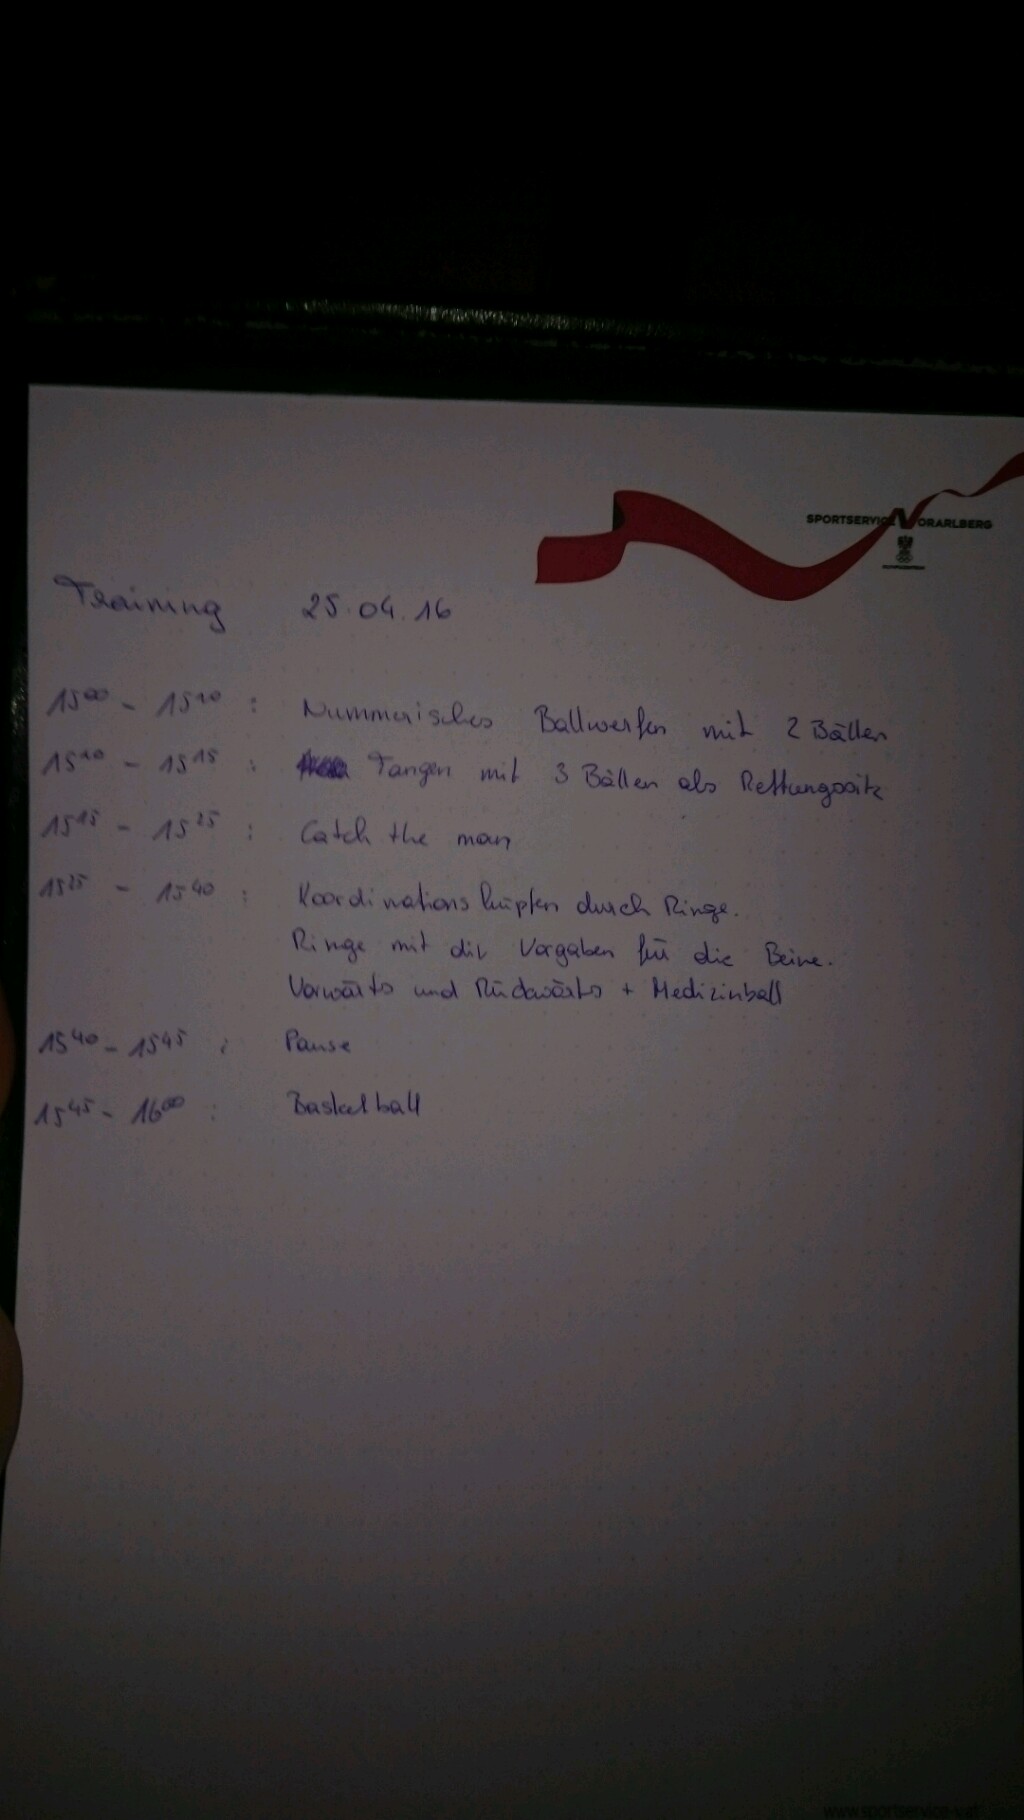 SPORTSERVICE VORARLBERG
Training 25.04.16
1500 - 1510 : Nummerisches Ballwerfen mit 2 Bällen
1510 - 1515 : Fangen mit 3 Bällen als Rettungs
1515 - 1525 : Catch the man
1525 - 1540 : Koordinationshüpfen durch Ringe.
Ringe mit div Vorgaben für die Beine.
Vorwärts und Rückwärts + Medizinball
1540 - 1545 : Pause
1545 - 1600 : Basketball